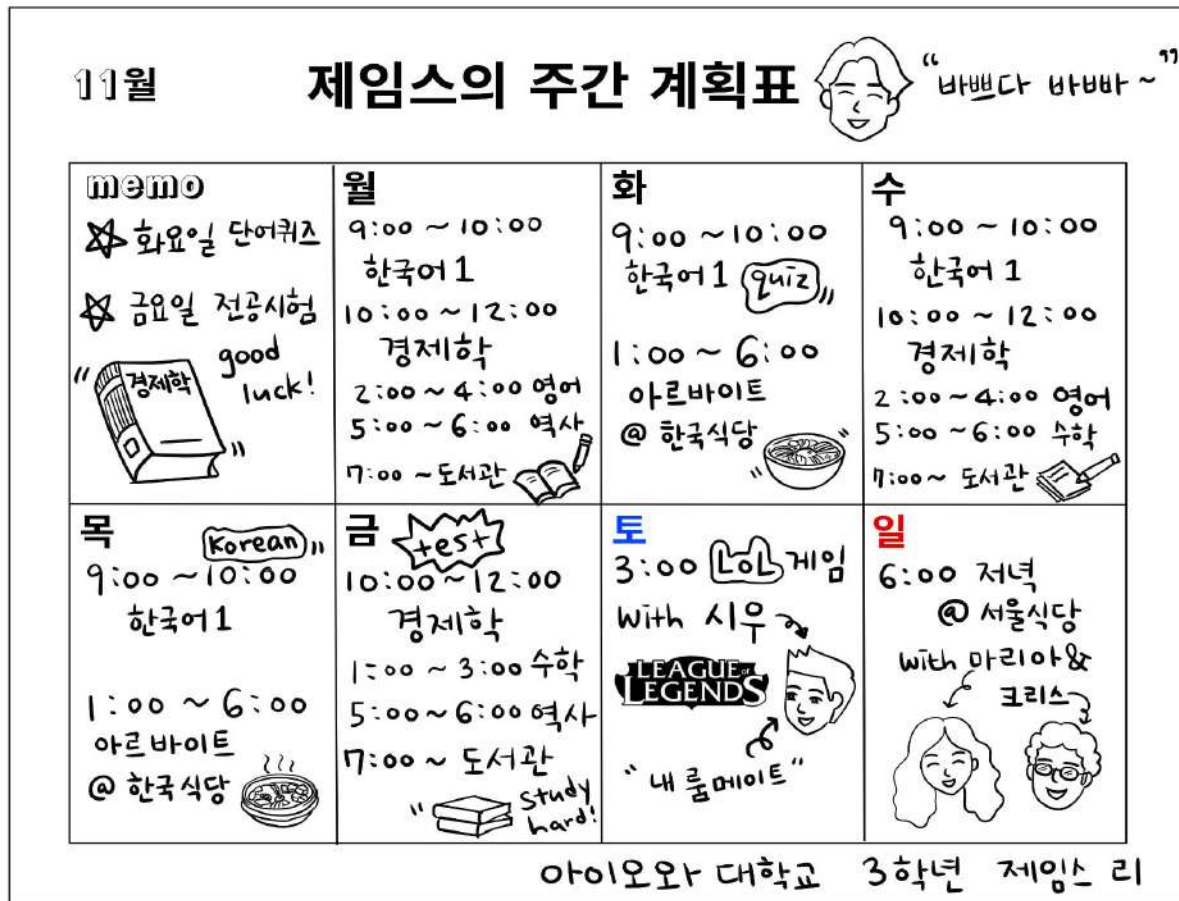 11월
제임스의 주간 계획표
"바쁘다 바빠~"
memo
☆ 화요일 단어퀴즈
☆ 금요일 전공시험
경제학
good
luck!
월
9:00 ~ 10:00
한국어 1
10:00 ~ 12:00
경제학
2:00 ~ 4:00 영어
5:00 ~ 6:00 역사
7:00 ~ 도서관
화
9:00 ~ 10:00
한국어 1 quiz
1:00 ~ 6:00
아르바이트
@ 한국식당
수
9:00 ~ 10:00
한국어 1
10:00 ~ 12:00
경제학
2:00 ~ 4:00 영어
5:00 ~ 6:00 수학
7:00 ~ 도서관
목
Korean
9:00 ~ 10:00
한국어 1
1:00 ~ 6:00
아르바이트
@ 한국식당
금 test
10:00 ~ 12:00
경제학
1:00 ~ 3:00 수학
5:00 ~ 6:00 역사
7:00 ~ 도서관
study
hard!
토
3:00 LoL 게임
with 시우
LEAGUE of
LEGENDS
"내 룸메이트"
일
6:00 저녁
@ 서울식당
with 마리아 &
크리스
아이오와 대학교 3학년 제임스 리